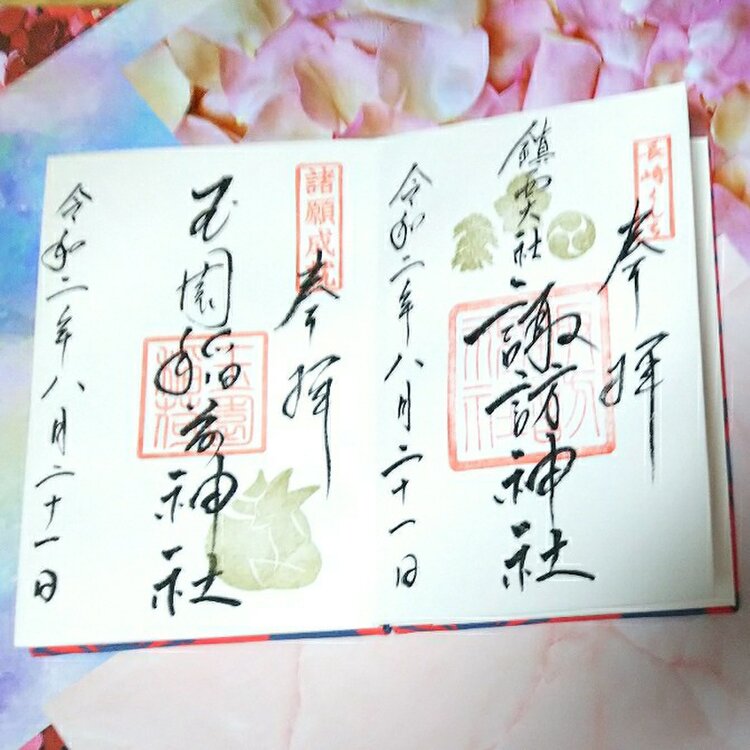 長崎くんち
奉拝
鎮西大社
諏訪神社
令和二年八月二十一日
諸願成就
奉拝
玉園稲荷神社
玉園稲荷
令和二年八月二十一日